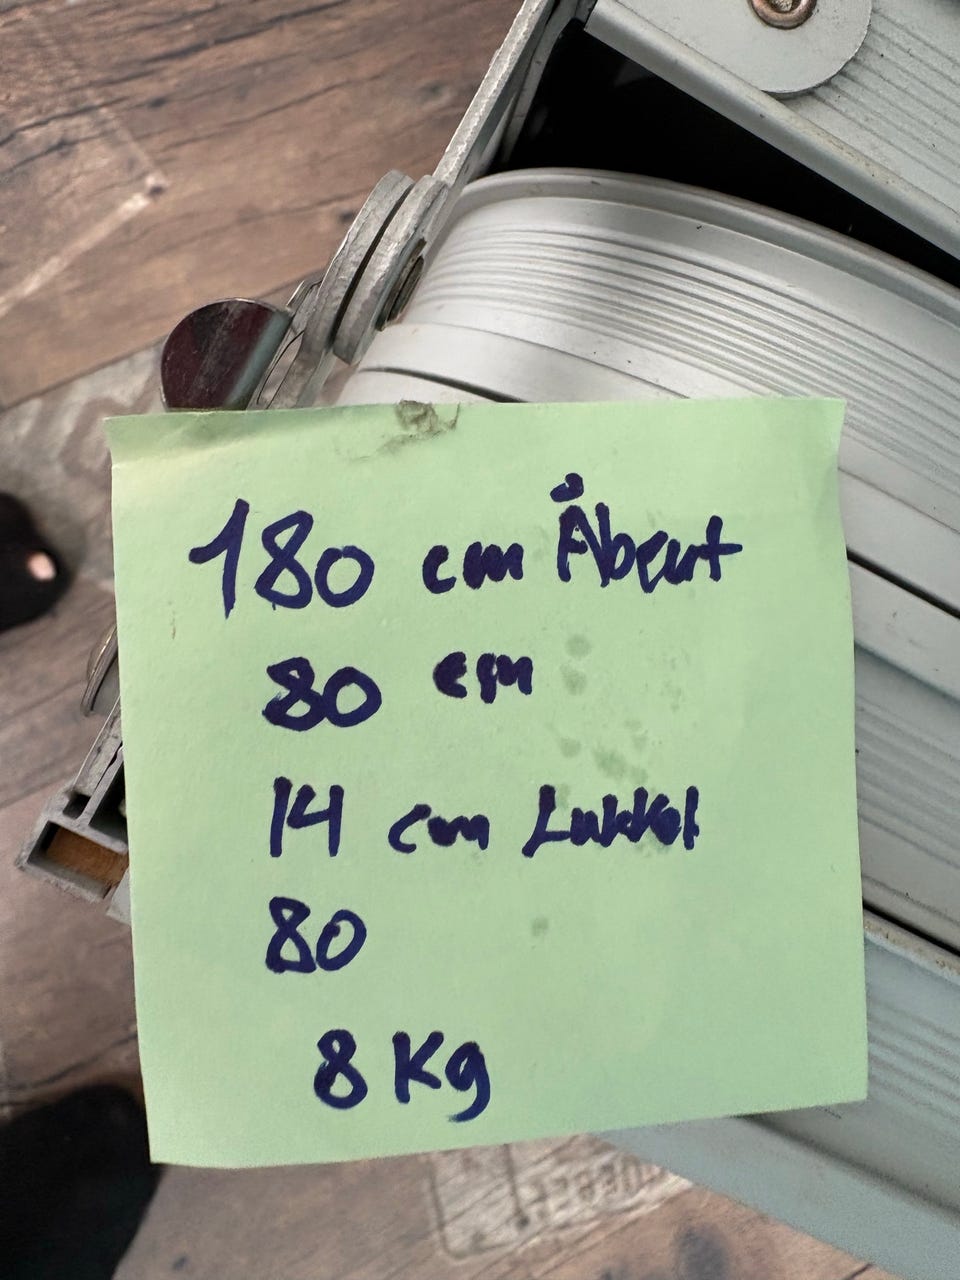 180 cm Åbent
80 cm
14 cm Lukket
80
8 Kg